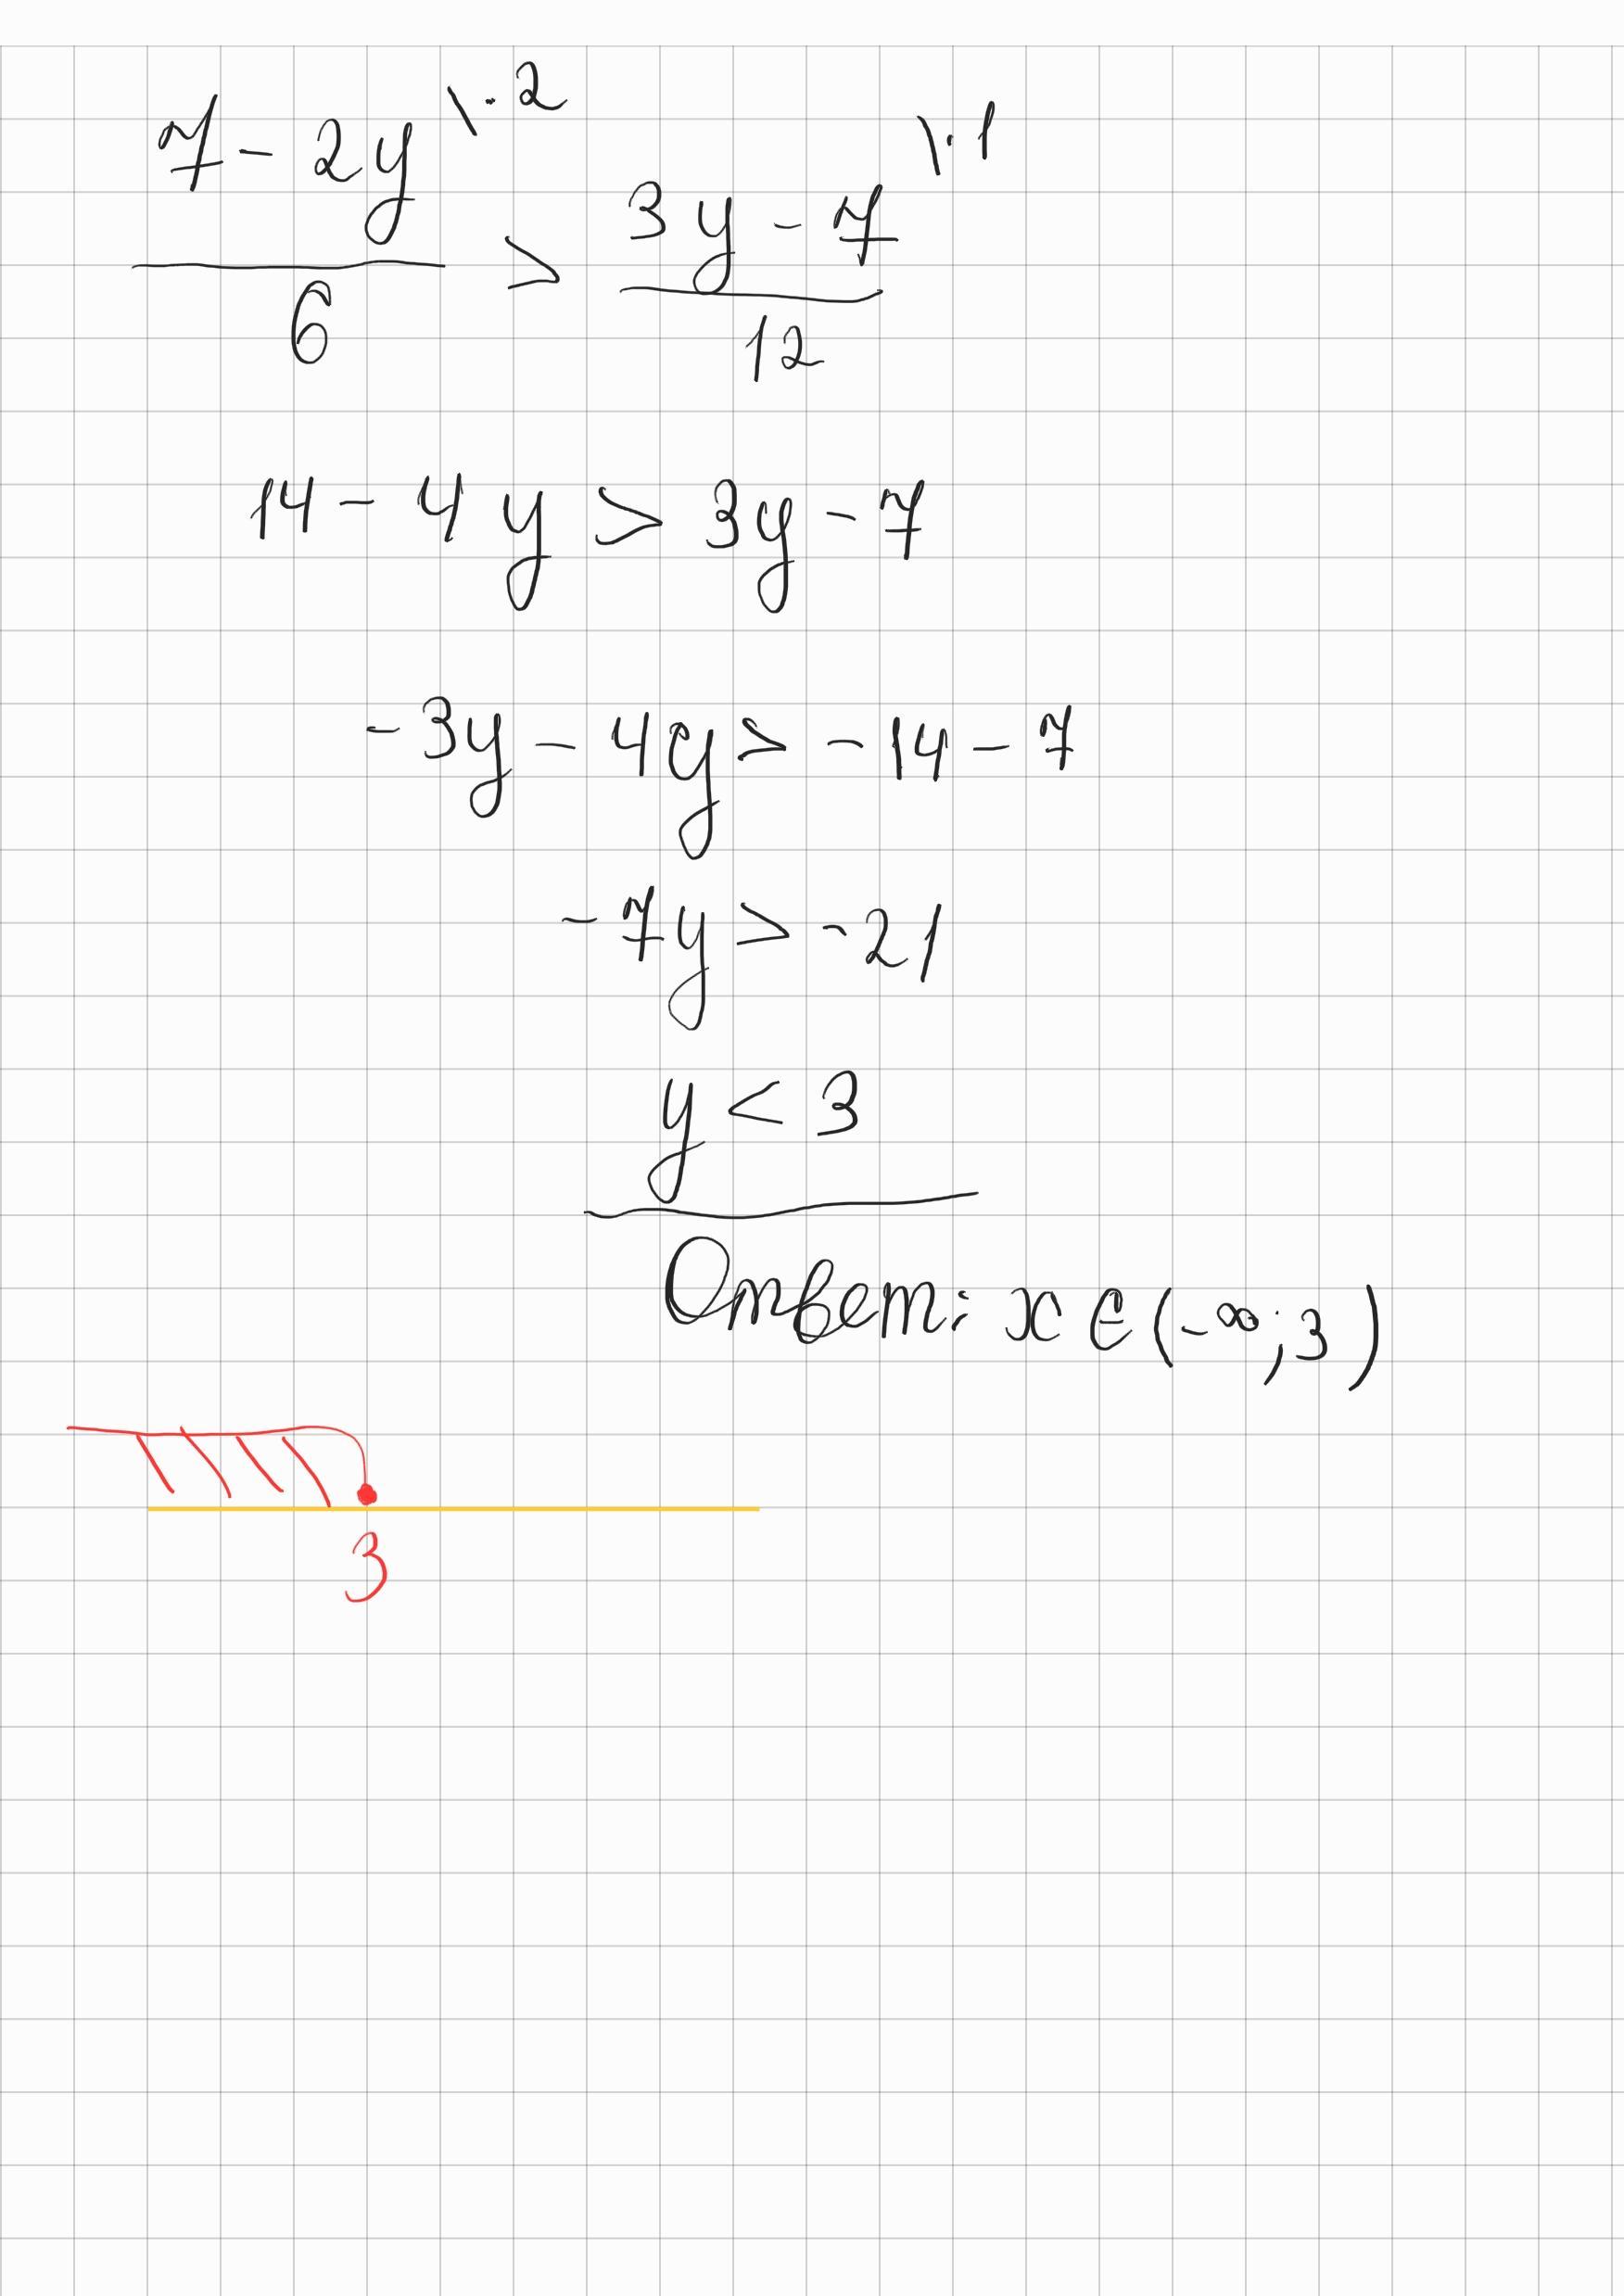 7 - 2y \· 2 / 6 > 3y - 7 \· 1 / 12
14 - 4y > 3y - 7
- 3y - 4y > - 14 - 7
- 7y > - 21
y < 3
Ответ: x ∈ (-∞; 3)
3